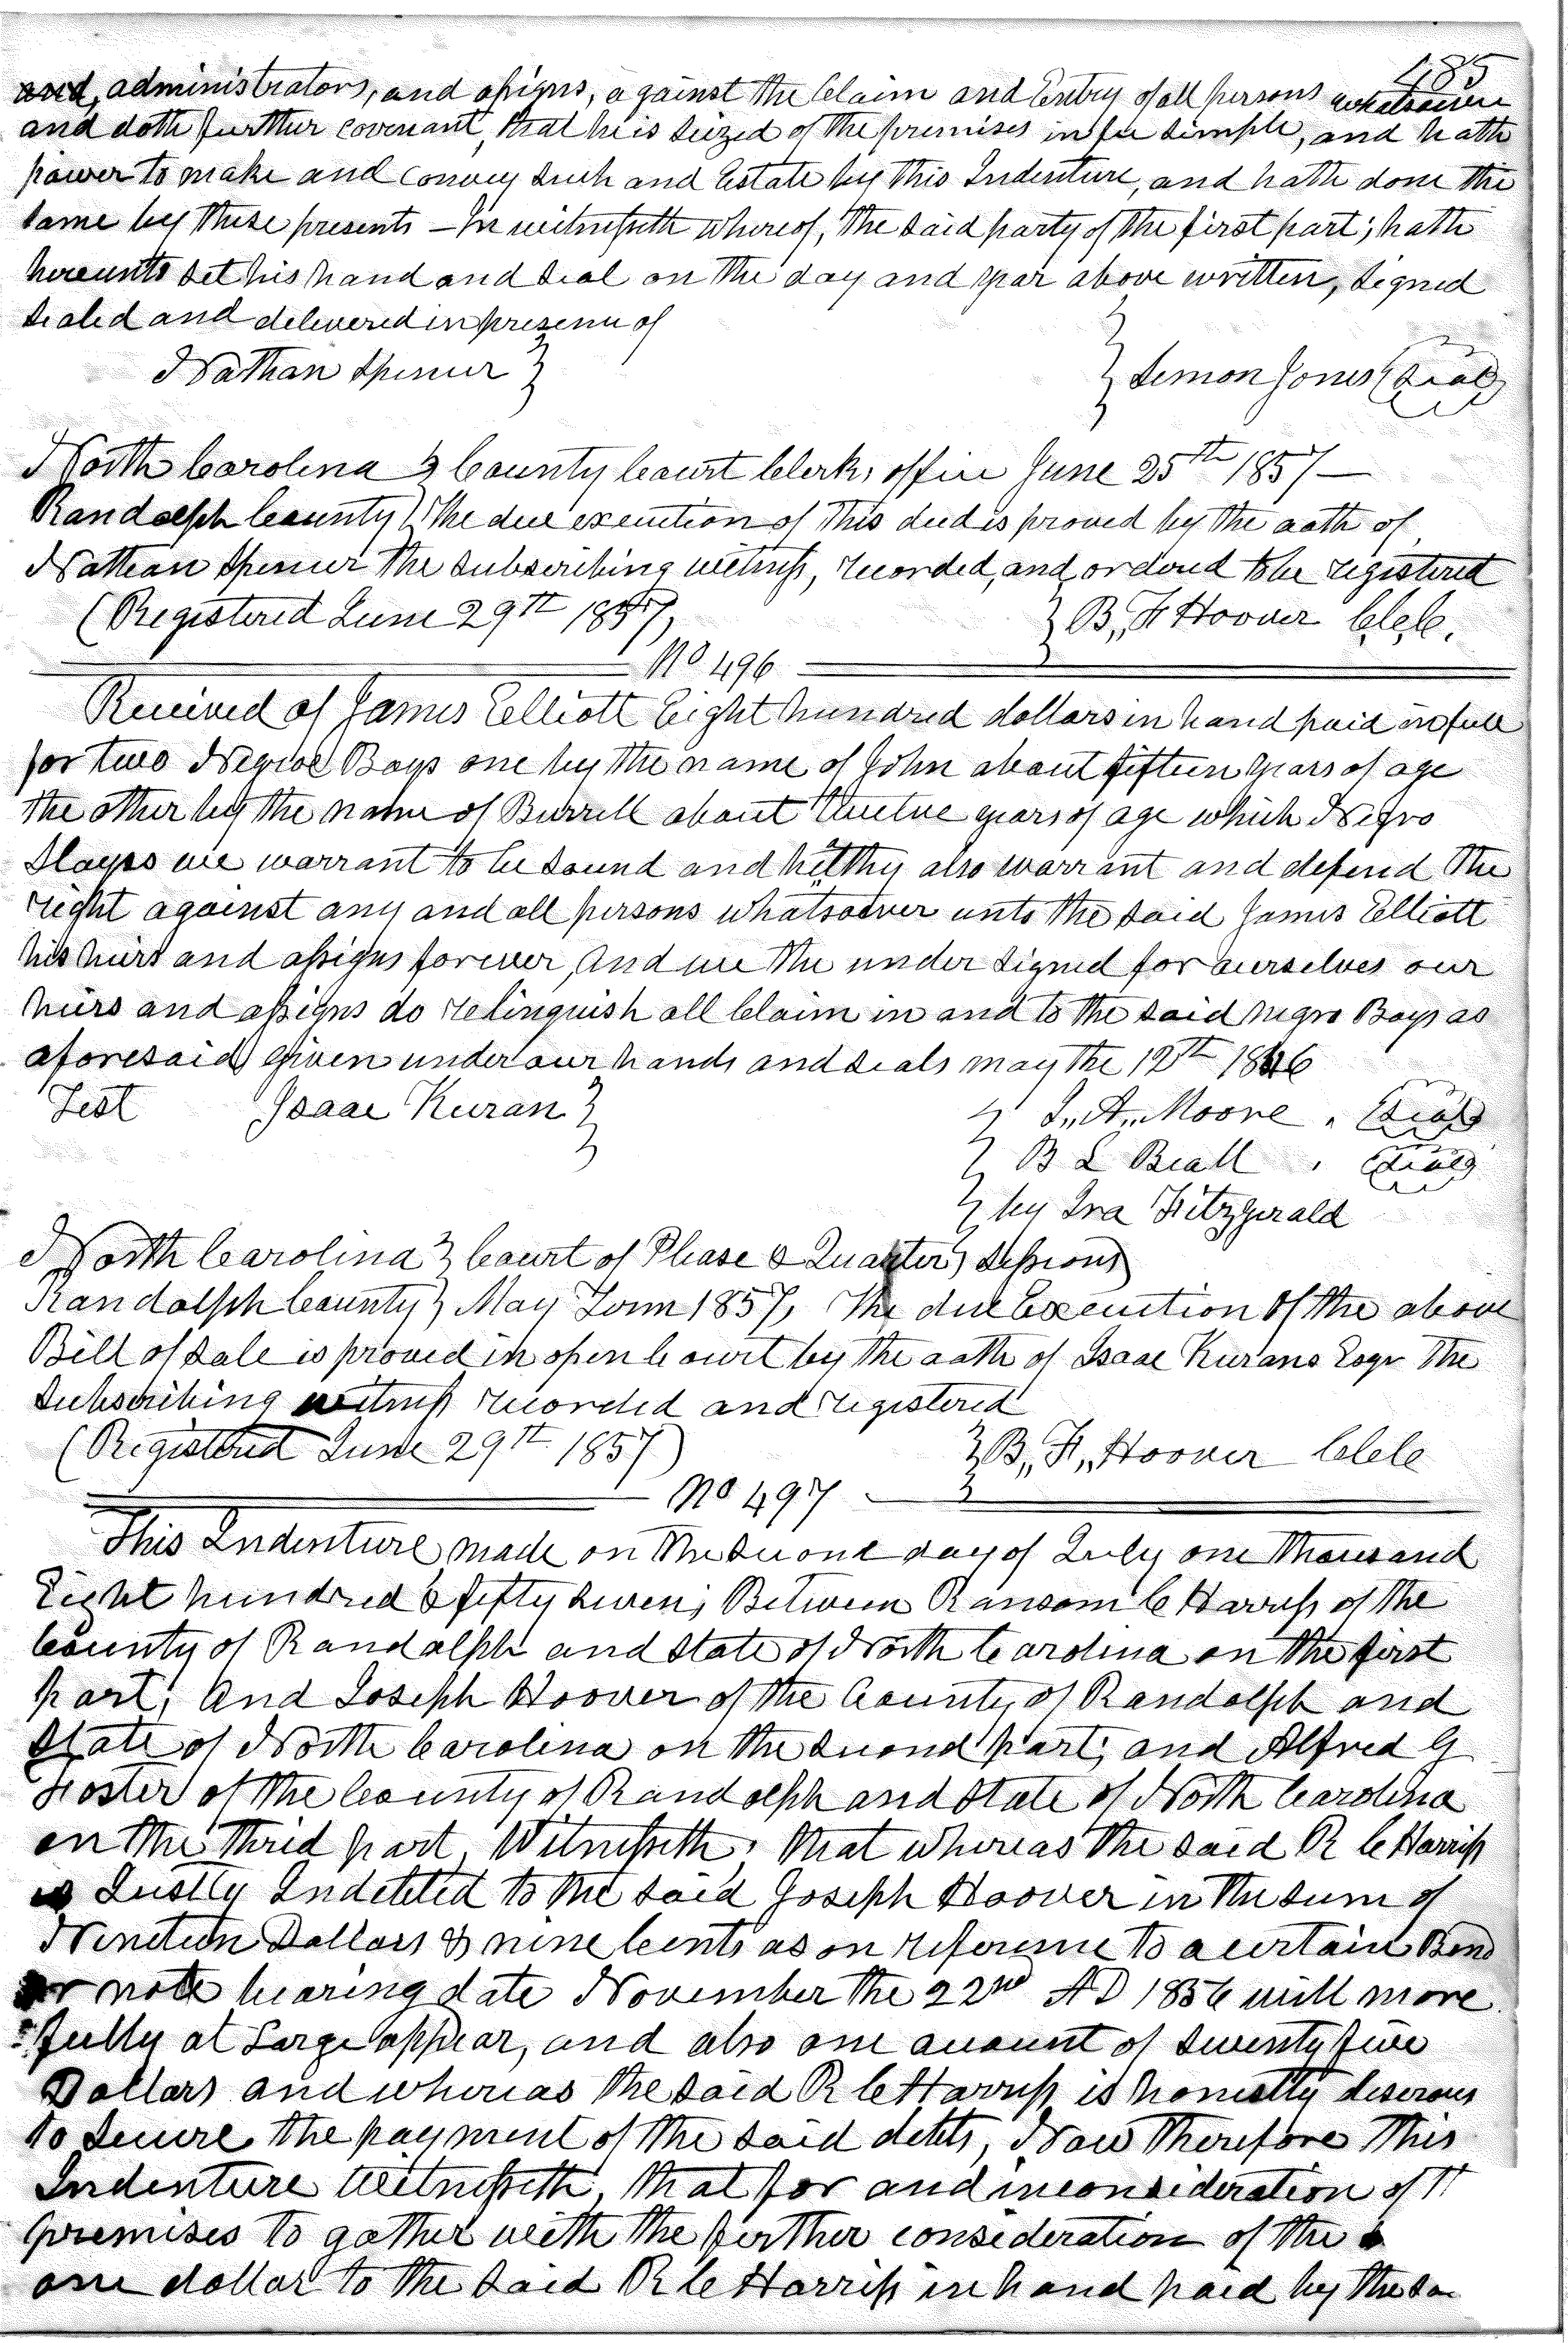 485
and, administrators, and assigns, against the Claim and Entry of all persons whatsoever
and doth further covenant, that he is seized of the premises in fee simple, and hath
power to make and convey such and Estate by this Indenture, and hath done the
same by these presents – In witnesseth whereof, the said party of the first part; hath
hereunto set his hand and seal on the day and year above written, signed
sealed and delivered in presence of
Nathan Spencer } } Semon Jones (Seal)
North Carolina } County Court Clerks office June 25th 1857 –
Randolph County } The due execution of this deed is proved by the oath of
Nathan Spencer the subscribing witness, recorded, and ordered to be registered
(Registered June 29th 1857, } B,, F Hoover C.C.C.
No 496
Received of James Elliott Eight hundred dollars in hand paid in full
for two Negroe Boys one by the name of John about fifteen years of age
the other by the name of Burrell about twelve years of age which Negro
Slayes we warrant to be sound and hilthy also warrant and defend the
right against any and all persons whatsoever unto the said James Elliott
his heirs and assigns forever, And we the under signed for ourselves our
heirs and assigns do relinquish all Claim in and to the said negro Boys as
aforesaid given under our hands and seals may the 12th 1846
Test Isaac Kuran } } J,, A,, Moore . (Seal)
} B L Beall . (Seal)
} by Ira Fitzgerald
North Carolina } Court of Please & Quarter, Sessions
Randolph County } May Term 1857, The due Execution of the above
Bill of sale is proved in open Court by the oath of Isaac Kurans Esqr the
subscribing witness recorded and registered
(Registered June 29th 1857) } B,, F,, Hoover C C C
No 497
This Indenture made on the second day of July one thousand
Eight hundred & fifty seven; Between Ransom C Harriss of the
County of Randolph and State of North Carolina on the first
part; And Joseph Hoover of the County of Randolph and
State of North Carolina on the second part; and Alfred G
Foster of the County of Randolph and State of North Carolina
on the thrid part, Witnesseth, that whereas the said R C Harriss
is Justly Indebted to the said Joseph Hoover in the sum of
Nineteen Dollars & nine Cents as on reference to a certain Bond
or note bearing date November the 22nd AD 1856 will more
fully at Large appear, and also one account of Twenty five
Dollars and whereas the said R C Harriss is honestly deserous
to secure the payment of the said debts, Now Therefore this
Indenture Witnesseth, that for and in consideration of th
premises to gather with the further consideration of the
one dollar to the said R C Harriss in hand paid by the sa